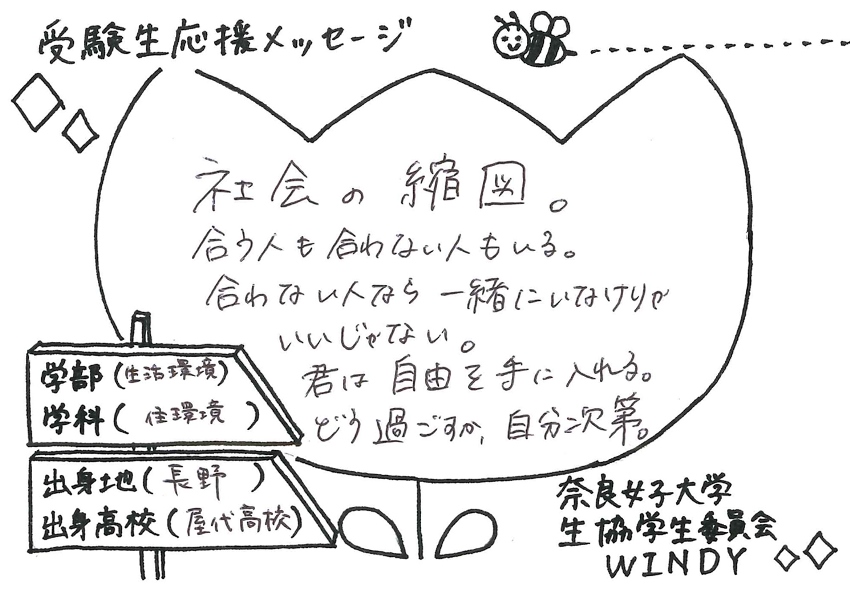 受験生応援メッセージ
社会の縮図。
合う人も合わない人もいる。
合わない人なら一緒にいなけりゃ
いいじゃない。
君は自由を手に入れる。
どう過ごすか、自分次第。
学部(生活環境)
学科(住環境)
出身地(長野)
出身高校(屋代高校)
奈良女子大学
生協学生委員会
WINDY